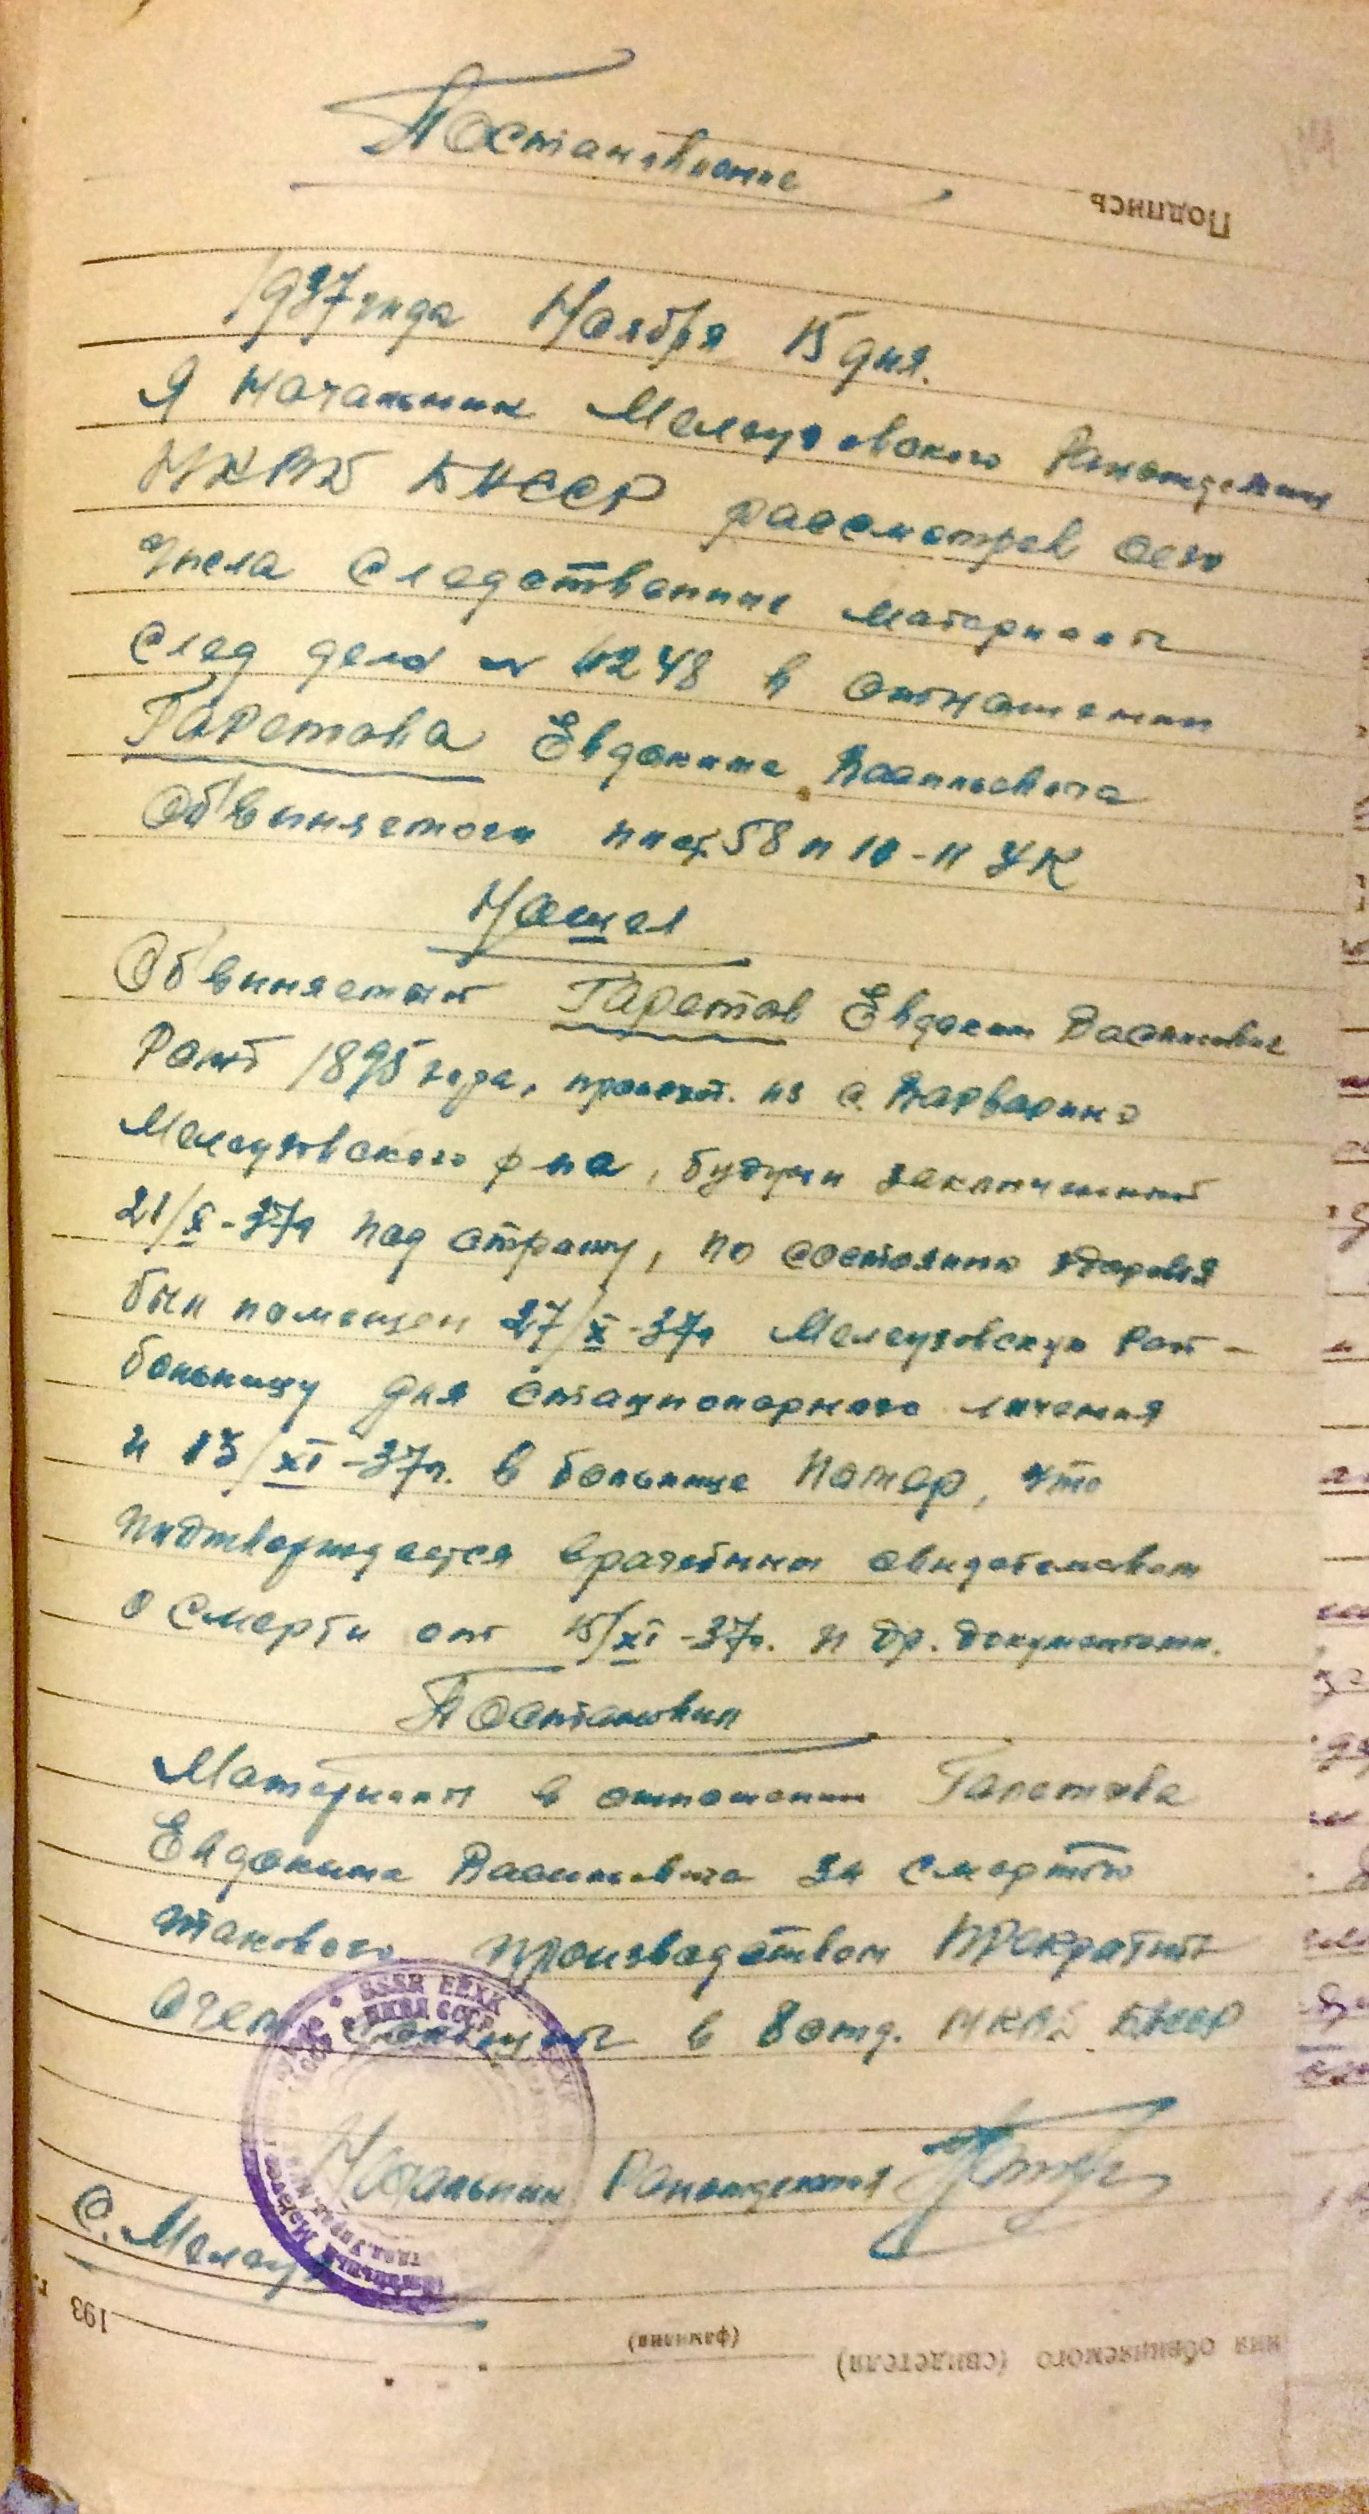 Постановление
Подпись
1937 года Ноября 15 дня.
Я Начальник Мелеузовского Райотделения
НКВД БАССР рассмотрев сего
числа следственные материалы
след дела № 4248 в отношении
Гаретова Евдокима Васильевича
Обвиняемого по ст 58 п 10-11 УК
Нашел
Обвиняемый Гаретов Евдоким Васильевич
Рожд 1895 года, происход. из с. Варварино
Мелеузовского р на, будучи заключенный
21/X-37г под стражу, по состоянию здоровья
был помещен 27/X-37г Мелеузовскую Рай-
больницу для стационарного лечения
и 13/XI-37г. в больнице помер, что
подтверждается врачебным свидетельством
о смерти от 15/XI-37г. и др. документами.
Постановил
Материалы в отношении Гаретова
Евдокима Васильевича за смертью
такового производством прекратить
в 8 отд. НКВД БАССР
Начальник Райотделения
С. Мелеуз
НКВД СССР
193 г.
(фамилия)
ния обвиняемого (свидетеля)